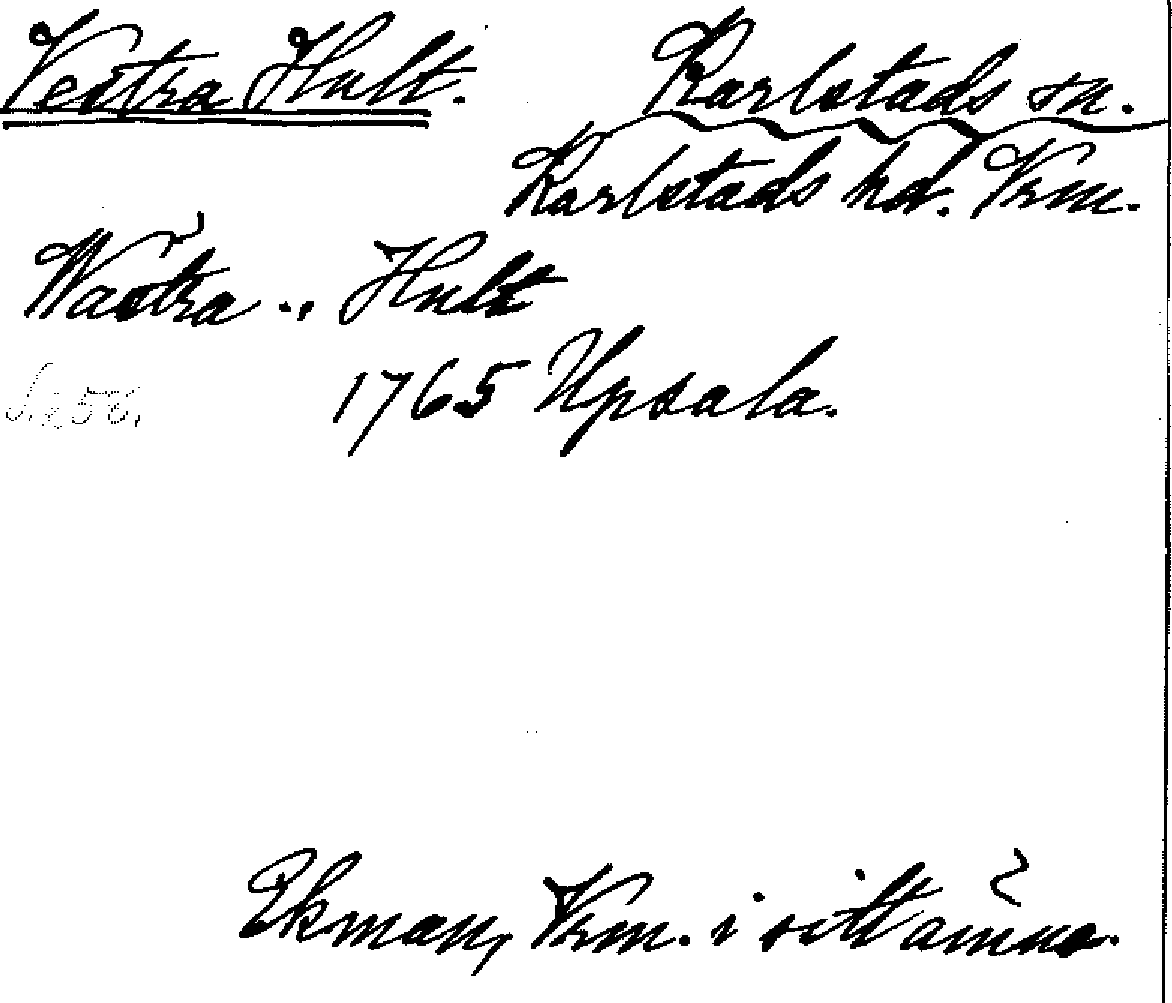 Vestra Hult. Karlstads sn.
Karlstads hd. Vrm.
Wästra „ Hult
S. 258. 1765 Upsala.
Ekman, Vrm. i sitt ämne.